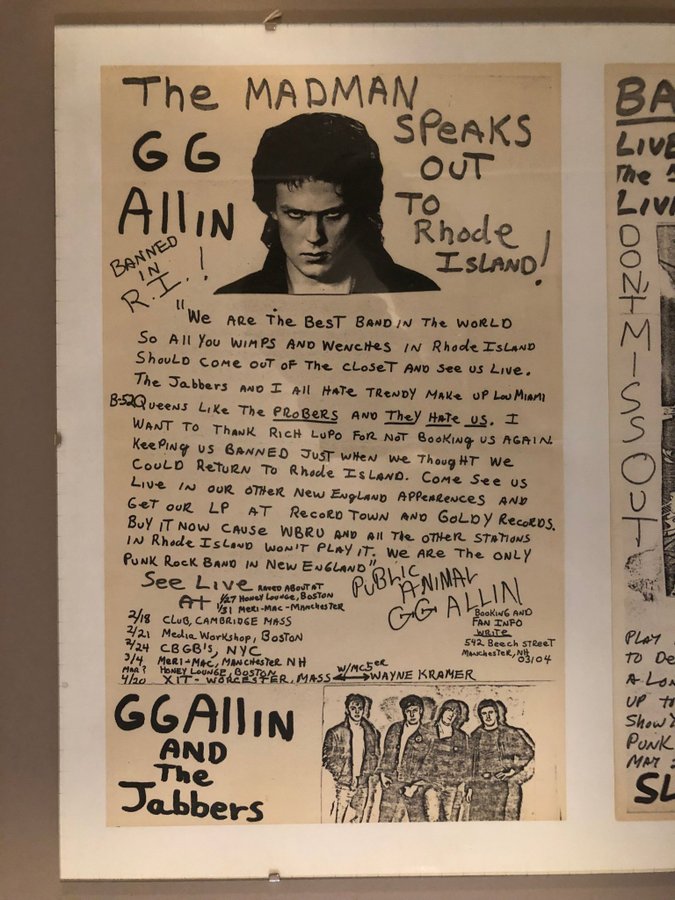 The MADMAN
GG
Allin
SPEAKS
OUT
TO
Rhode
ISLAND!
BANNED
IN
R.I.!
"We ARE The BesT BAND IN The WORLD
So All You WIMPS AND WeNCHES IN RhoDe ISLAND
Should Come OuT OF The CLOSET AND See uS LIVe.
The Jabbers AND I All HATE TRENDY MAKe UP Lou MIAMI
B-52 Queens LIKe The PROBERS AND They HATe US. I
WANT TO THANK RICH LUPO FOR NOT BOOKING US AGAIN.
KeePING US BANNeD JUST WHEN We ThougHT We
COULD ReTURN TO RhoDe ISLAND. Come See us
LIVE IN OUR OTHeR NEW ENGLAND APPeARENCES AND
GeT OUR LP AT RECORD TOWN AND GOLDY RecoRDS.
BUY IT NOW CAUSE WBRU AND All The OTHeR STATIONS
IN RhoDe ISLAND WON'T PLAY IT. We ARE The ONLY
PUNK ROCK BAND IN NEW ENGLAND"
See Live
AT
RAVED ABOUT AT
1/27 HONEY LOUNGE, BOSTON
1/31 MERI-MAC-MANCHESTER
2/18 CLUB, CAMBRIDGE MASS
2/21 MeDIA WORKShop, BOSTON
2/24 CBGB'S, NYC
3/4 MERI-MAC, MANCHESTER NH
MAR? HONEY LOUNGE, BOSTON
4/20 XIT-WORCESTER, MASS
W/MC5er
WAYNE KRAMER
PUBLIC
ANIMAL
GG ALLIN
BOOKING AND
FAN INFO
WRITE
542 BeecH STREET
MANCHESTER, NH
03104
GG Allin
AND
The
Jabbers
BA
LIVE
The
LIVI
DON'T MISS OUT
PLAY
TO De
A LON
UP TO
ShowY
PUNK
MAY
SL